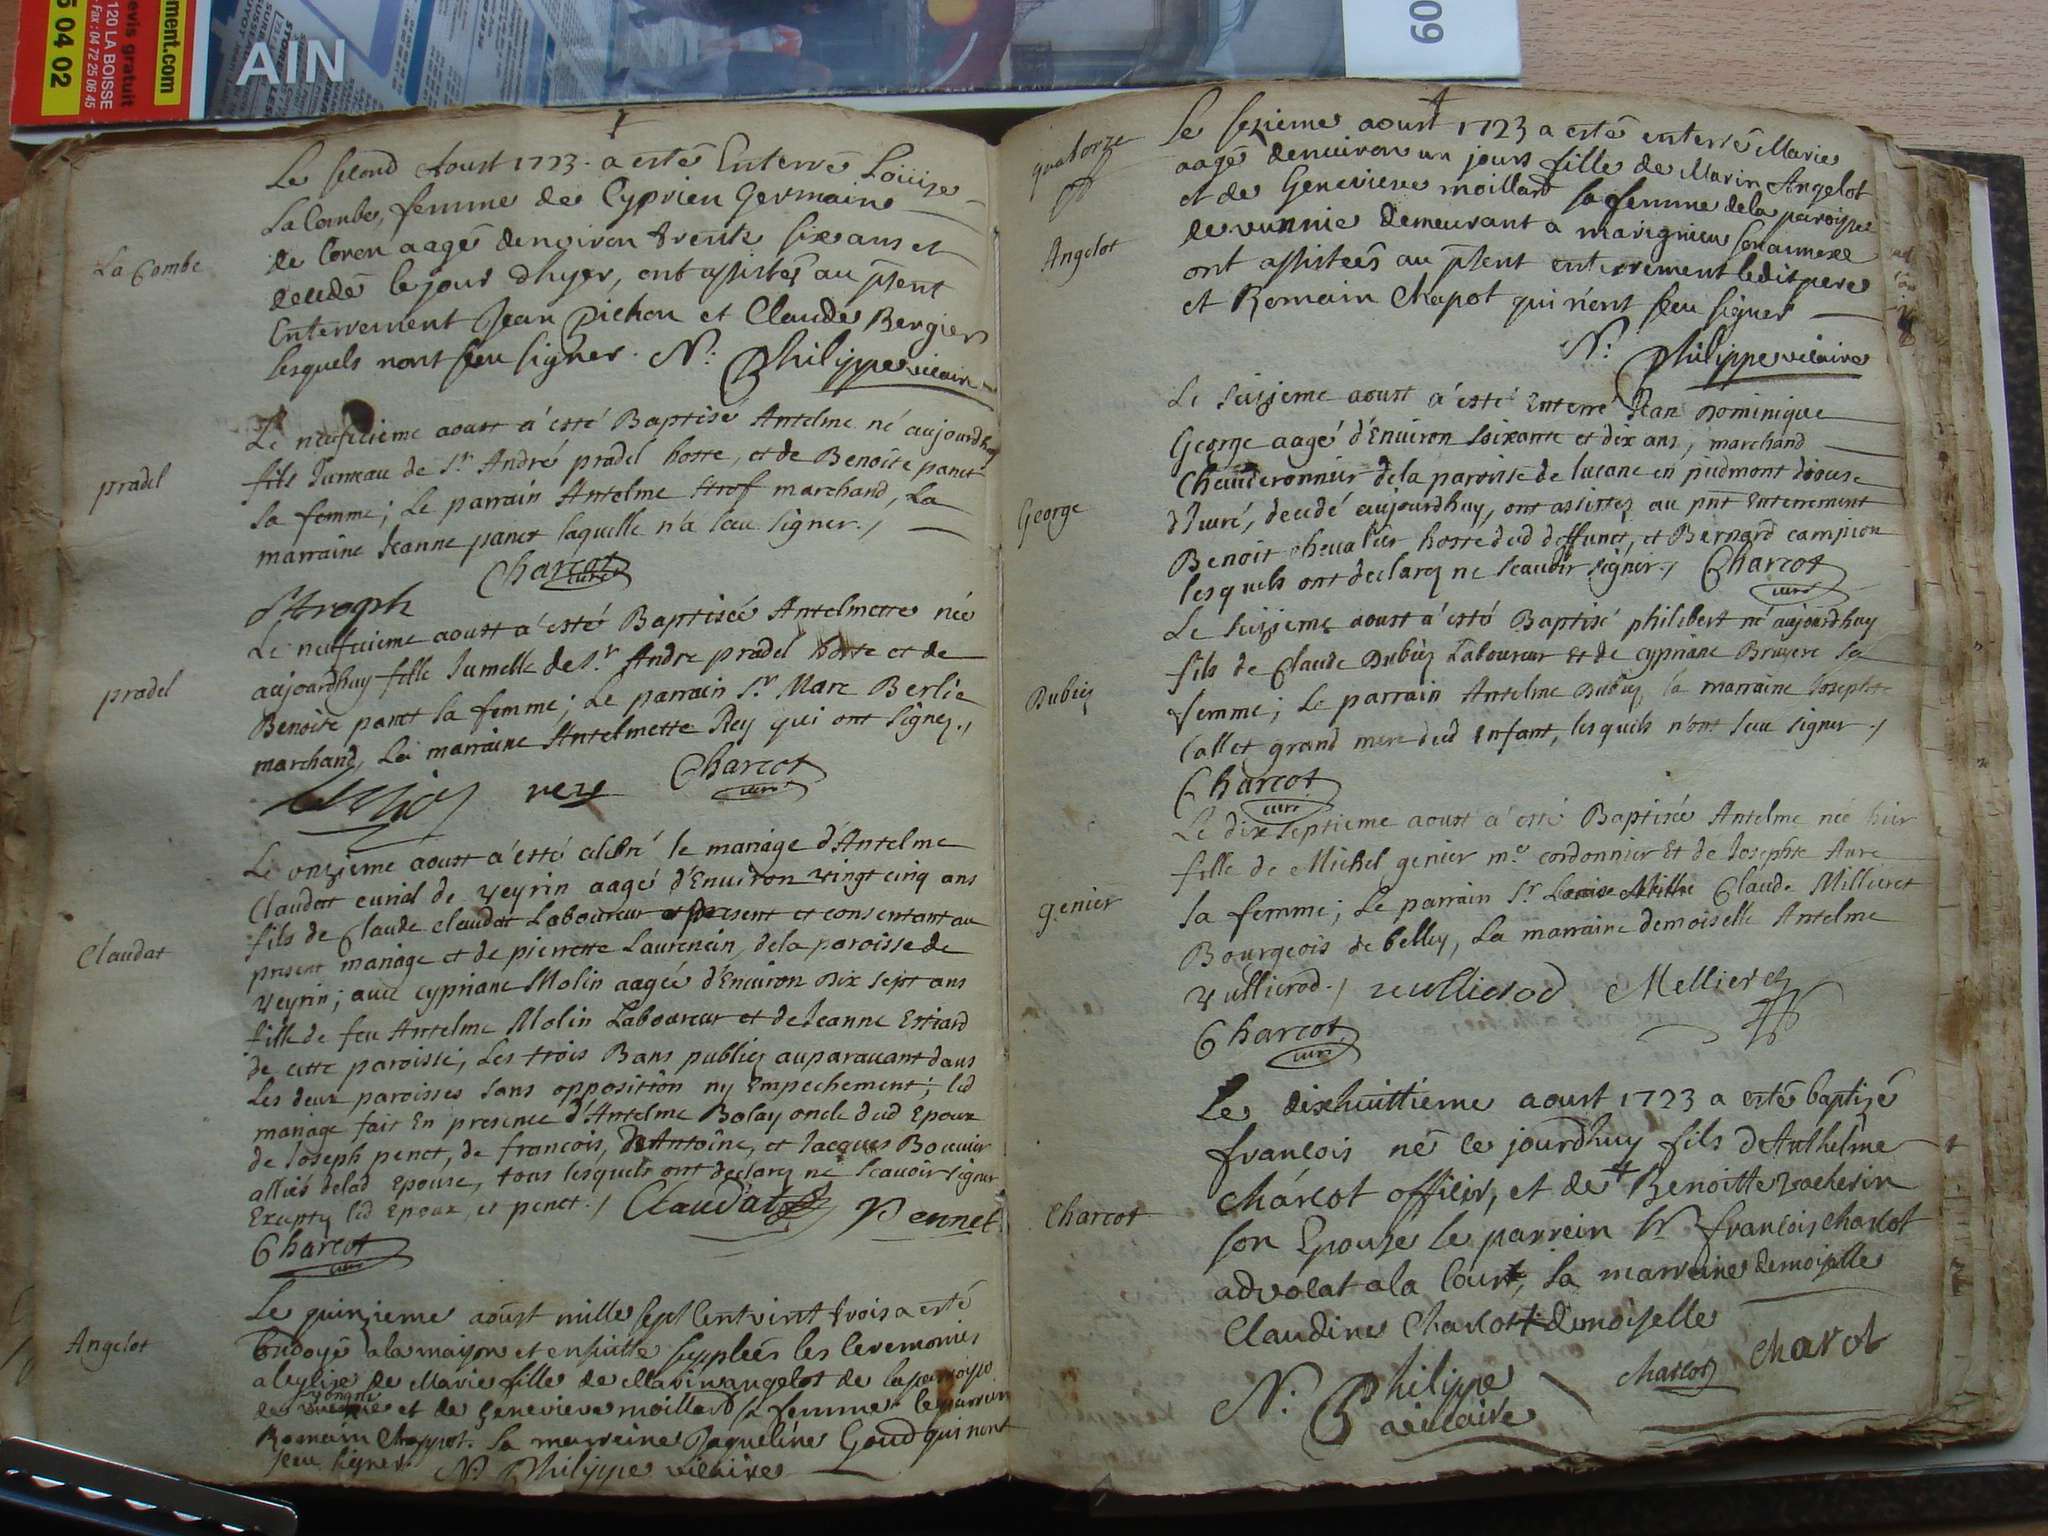 AIN
09
ment.com
evis gratuit
5 04 02
120 LA BOISSE
Fax : 04 72 25 06 45
Le second Aoust 1723. a esté Enterré Loüise
La Combe, femme de Cyprien Germain
de Coren aagé denviron trente six ans et
decedé le jour dhyer, ont assistés au pñent
Enterrement Jean Pichon et Claude Bergier
lesquels nont sceu signer. N: Philippe vicaire
La Combe
Le neufvieme aoust a esté Baptisé Antelme né aujourdhuy
fils Jumeau de Sr André pradel hoste, et de Benoite panet
sa femme; Le parrain Antelme Strof marchand, La
marraine Jeanne panet laquelle n'a sceu signer./
pradel
Charcot
curé
Stroph
Le neufvieme aoust a esté Baptisée Antelmette née
aujourdhuy fille Jumelle de Sr Andre pradel hoste et de
Benoite panet sa femme; Le parrain Sr Marc Berlie
marchand, La marraine Antelmette Rey qui ont signez./
pradel
rey Charcot
curé
Le onzieme aoust a esté celebré le mariage d'Antelme
Claudat curial de Veyrin aagé d'Environ vingt cinq ans
fils de Claude Claudat Laboureur et present et consentant au
present mariage et de pierrette Laurencin, de la paroisse de
Veyrin; avec cypriane Molin aagée d'Environ Dix sept ans
fille de feu Antelme Molin Laboureur et de Jeanne Estiard
de cette paroisse, Les trois Bans publiez auparavant dans
Les deux paroisses sans opposition ny Empechement; led
mariage fait En presence d'Antelme Bolay oncle dud Epoux
de Joseph penet, de francois, de Antoine, et Jacques Bouvier
alliés delad Epouse, tous lesquels ont declarez ne scavoir signer
Excepty led Epoux, et penet./ Claudat Pennet
Claudat
Charcot
curé
Le quinzieme aoust mille sept Cent vint trois a esté
Endoyé a la maison et ensuitte suppleés les Ceremonies
a leglise de Marie fille de Marin angelot de la parroisse
de et de Genevieve moillard sa femme le parrein
Romain Chappot. la marreine Jaqueline Goud qui nont
sceu signer. N: Philippe vicaire
Angelot
quatorze
Le sezieme aoust 1723 a esté enterré Marie
aagé denviron un jours fille de Marin Angelot
et de Genevieve moillard sa femme de la paroisse
de vunnie demeurant a marignieu son annexe
ont assisteés au pñent enterrement ledit pere
et Romain Chapot qui n'ont sceu signer
Angelot
N: Philippe vicaire
Le seizieme aoust a esté Enterré Jean Dominique
George aagé d'Environ soixante et dix ans, marchand
Chauderonnier de la paroisse de lucane en piedmont diocese
d'Ivrée, decedé aujourdhuy, ont assistez au pñt Enterrement
Benoit chevalier hoste dud deffunct, et Bernard campion
lesquels ont declarez ne scavoir signer./ Charcot
curé
George
Le seizieme aoust a esté Baptisé philibert né aujourdhuy
fils de Claude Dubiez Laboureur Et de cypriane Bruyere sa
femme; Le parrain Antelme Dubiez la marraine Josephte
Callet grand mere dud Enfant, lesquels n'ont sceu signer./
Dubiez
Charcot
curé
Le dix septieme aoust a esté Baptisée Antelme née hier
fille de Michel genier me cordonnier Et de Josephte Aure
sa femme; Le parrain Sr Claude Millieret
Bourgeois de belley, La marraine demoiselle Antelme
Vullierod./ vullierod Mellieret
genier
Charcot
curé
Le dixhuittieme aoust 1723 a esté baptizé
francois né ce jourdhuy fils d'Anthelme
charcot officier, et de Benoitte vacherin
son Epouse le parrein Sr francois charcot
advocat a la Cour, la marreine demoiselle
Claudine Charcot demoiselle
Charcot
N: Philippe
vicaire
charcot charcot